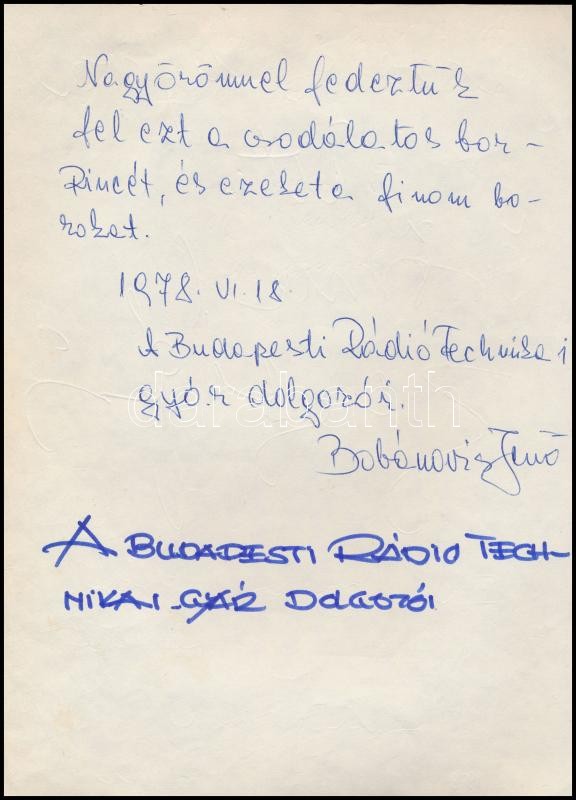 Nagy örömmel fedeztük
fel ezt a csodálatos bor-
Pincét, és ezeket a finom bo-
rokat.
1978. VI. 18.
A Budapesti Rádió Technikai
gyár dolgozói.
darabanth
Bobánovis Jenő
A BUDAPESTI RÁDIO TECH-
NIKAI GYÁR DOLGOZÓI